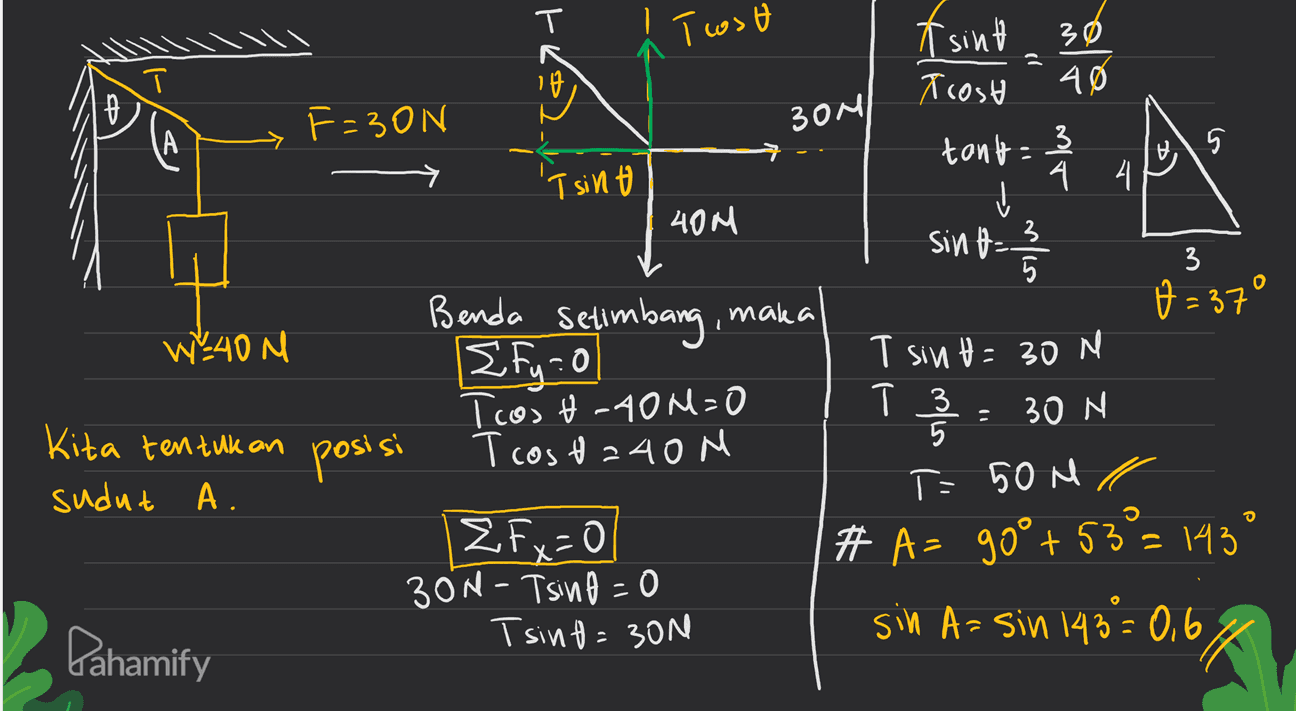 T
θ
A
F = 30 N
W = 40 N
Kita tentukan posisi
sudut A.
T
T cos θ
θ
30 N
T sin θ
40 N
Benda setimbang, maka
ΣFy = 0
T cos θ - 40 N = 0
T cos θ = 40 N
ΣFx = 0
30 N - T sin θ = 0
T sin θ = 30 N
T sin θ / T cos θ = 30 / 40
tan θ = 3/4
sin θ = 3/5
4
θ
5
3
θ = 37°
T sin θ = 30 N
T 3/5 = 30 N
T = 50 N
# A = 90° + 53° = 143°
sin A = sin 143° = 0,6
Pahamify